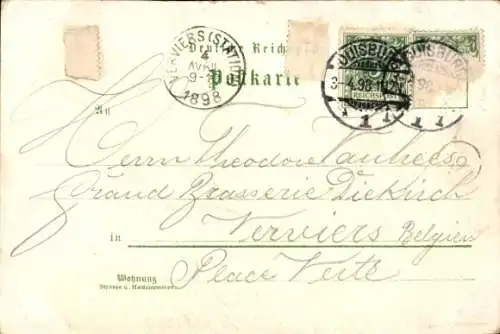 VERVIERS (STATION)
4
AVRIL
9-1
1898
Deutsche Reichspost
Postkarte
DUISBURG
3 4.98.
1 1
REICHSPOST
DUISBURG
98
1 1
An
Herrn Theodore
Grand Brasserie Diekirch
in Verviers Belgien
Wohnung
Place Verte